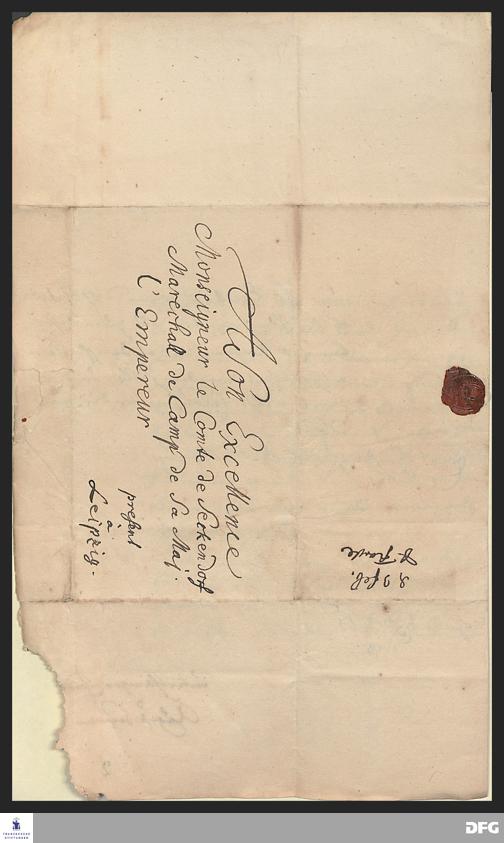 A Son Excellence
Monseigneur le Comte de Seckendorf
Marechall de Camp de Sa Maj.
l'Empereur
present
à
Leipzig.
feb.
FRANCKESCHE STIFTUNGEN
DFG